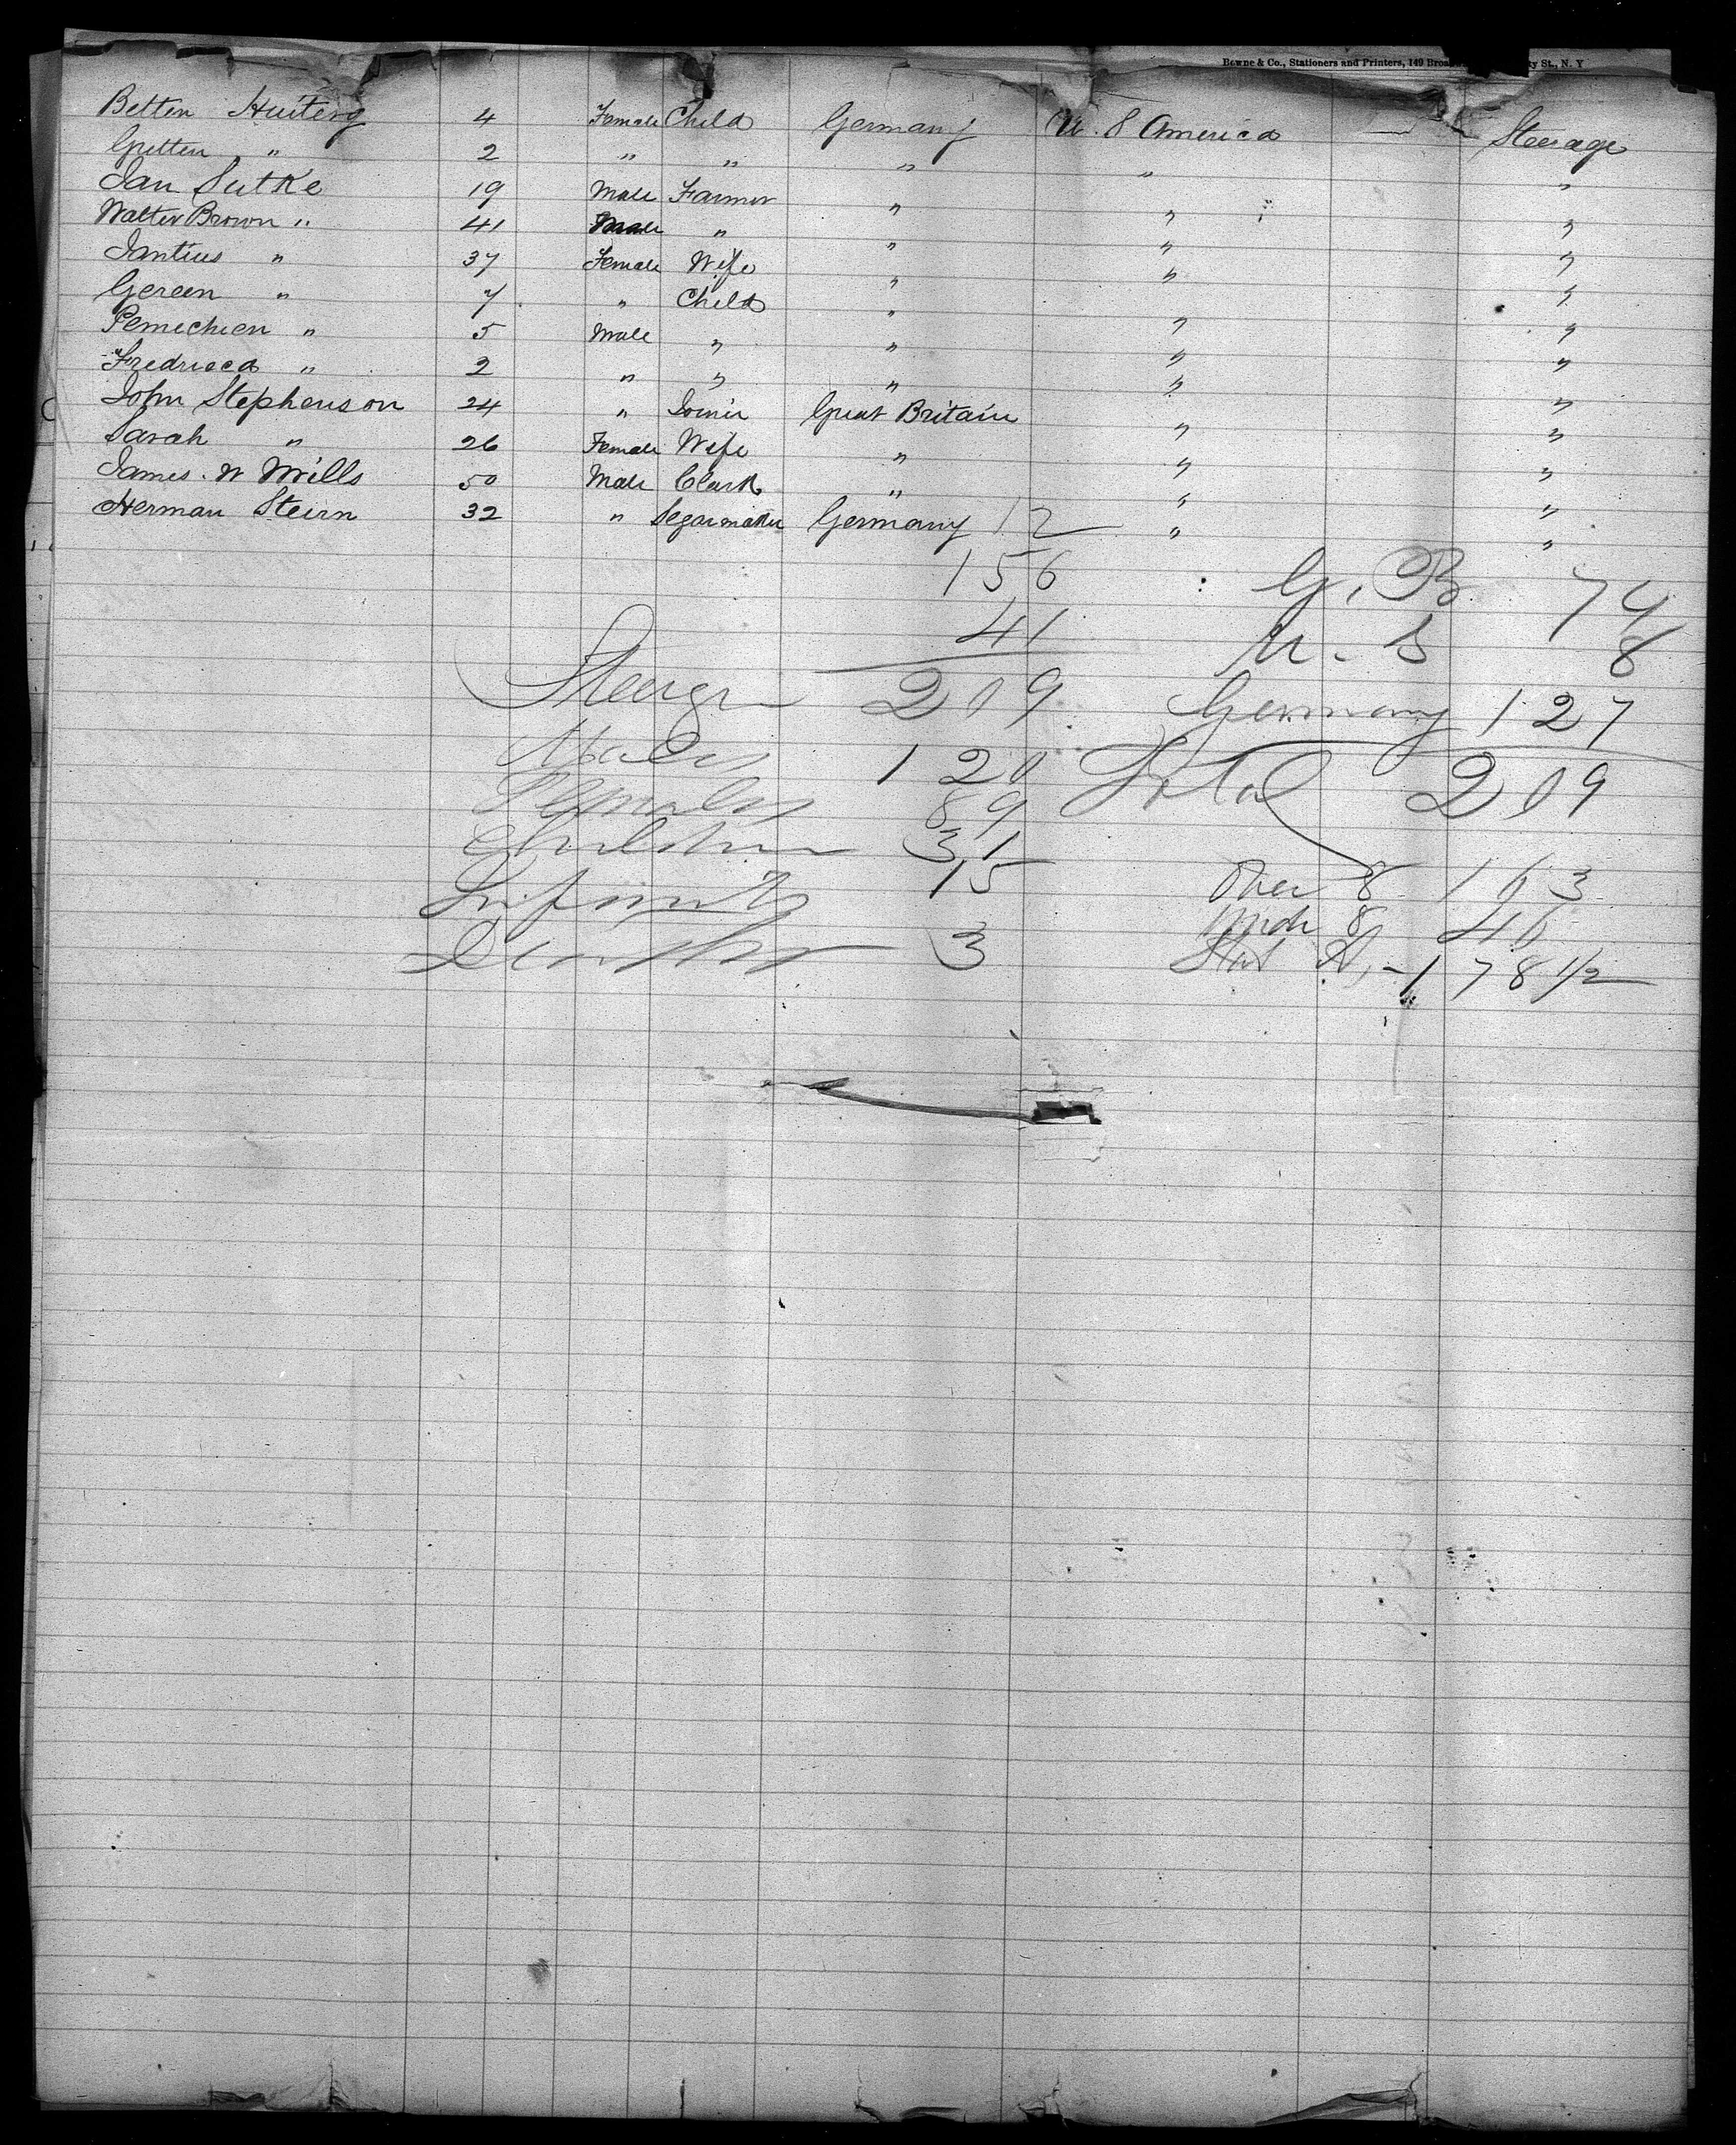 Bowne & Co., Stationers and Printers, 149 Broa ty St., N. Y
Betten Huiteng 4 Female Child Germany U. S America Steerage
Gretten " 2 " " " " "
Jan Sutke 19 Male Farmer " " "
Walter Brown " 41 Male " " " "
Jantius " 37 Female Wife " " "
Gereen " 7 " Child " " "
Pemechien " 5 Male " " " "
Fredrieca " 2 " " " " "
John Stephenson 24 " Joiner Great Britain " "
Sarah " 26 Female Wife " " "
James. W Mills 50 Male Clark " " "
Herman Steirn 32 " Segarmaker Germany " "
12
156
41
Steerage 209
Males 120
Females 89
Children 31
Infants 15
Deaths 3
G. B 74
U. S 8
Germany 127
Total 209
Over 8 163
Under 8 46
Stat A, - 178 1/2